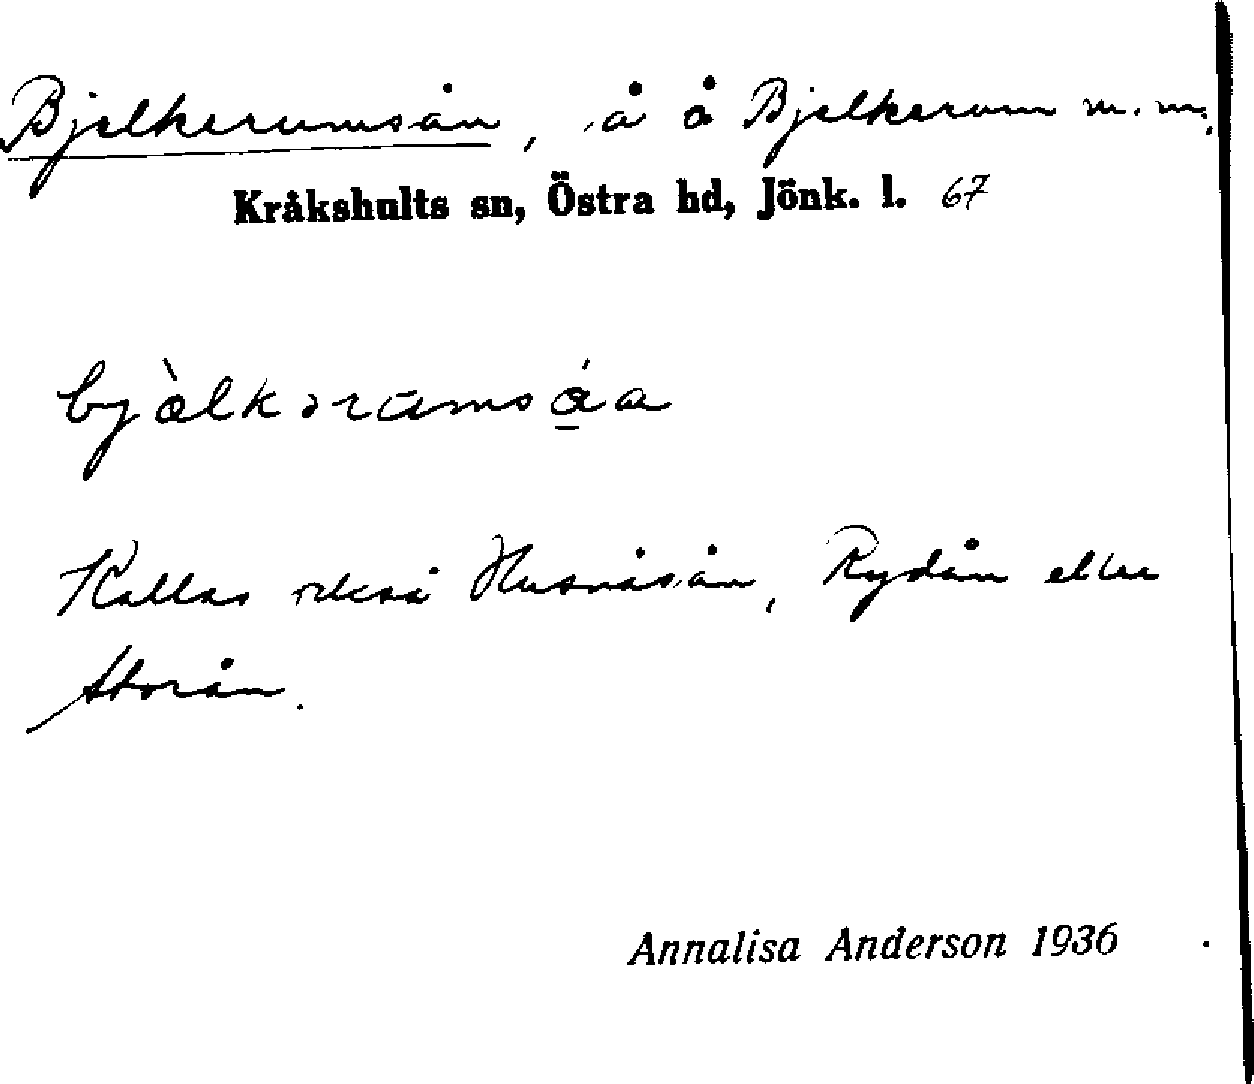 Bjelkerumsån, å å Bjelkerum m.m.
Kråkshults sn, Östra hd, Jönk. l. 67
Kallas också Husnäsån, Rydån eller
Storån.
Annalisa Anderson 1936